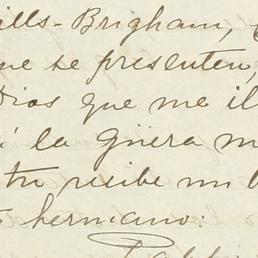 ills-Brigham,
ue se presenten,
Dios que me il
la güera m
tu recibe un
hermano: